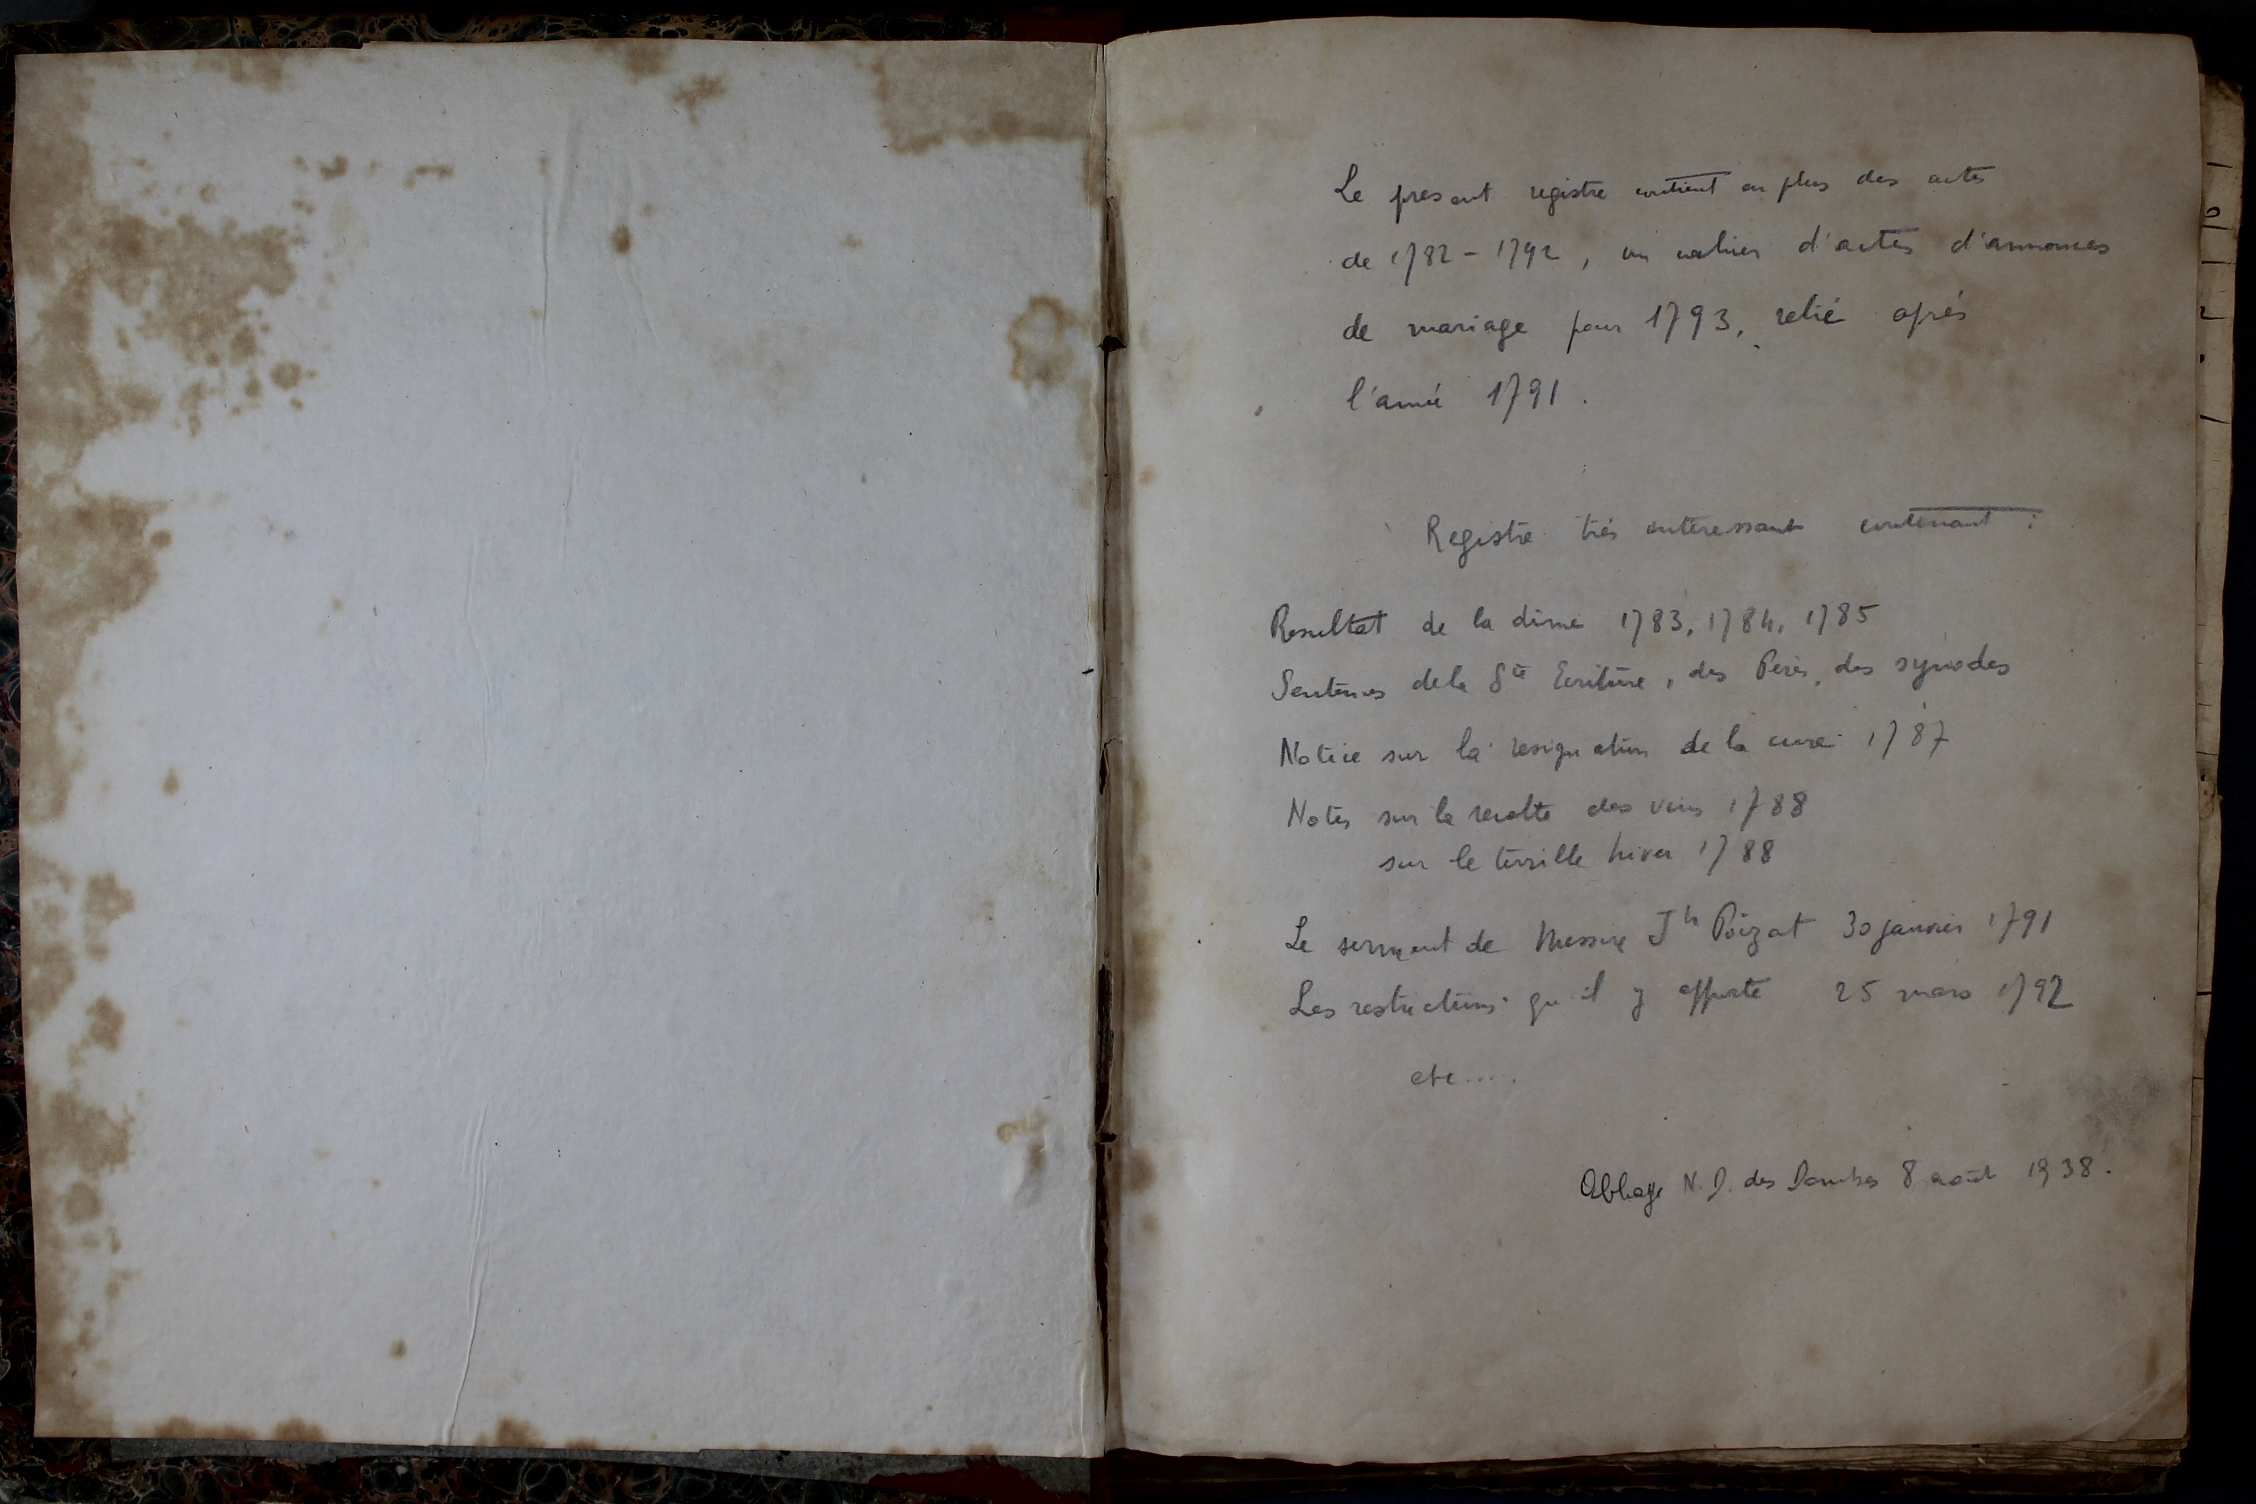 Le present registre contient en plus des actes
de 1782 - 1792, un cahier d'actes d'annonces
de mariage pour 1793, relié après
l'année 1791.
Registre très interessant contenant :
Resultat de la dime 1783, 1784, 1785
Sentences de la Ste Ecriture, des Pères, des synodes
Notice sur la resignation de la cure 1787
Notes sur la recolte des vins 1788
sur le terrible hiver 1788
Le serment de Messire Jh Poizat 30 janvier 1791
Les restrictions qu'il y apporte 25 mars 1792
etc.....
Abbaye N. D. des Dombes 8 août 1938.